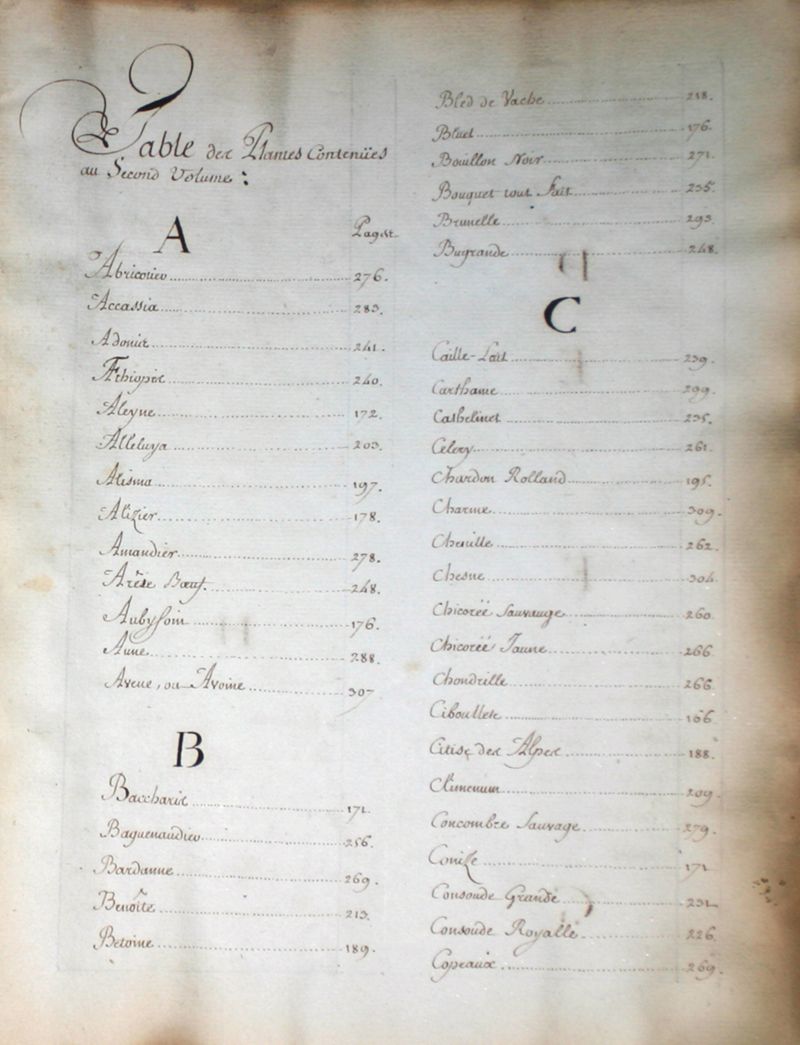 Table des Plantes Contenües
au Second Volume :
A
Pages.
Abricotier 276.
Accassia 283.
Adonis 241.
Æthiopis 240.
Aleyne 172.
Alleluya 203.
Alisma 197.
Alizier 178.
Amandier 278.
Arêste Bœuf 248.
Aubyfoin 176.
Aune 288.
Aveue, ou Avoine 307
B
Baccharis 171.
Baguenaudier 256.
Bardanne 269.
Benoîte 213.
Betoine 189.
Bled de Vache 218.
Bluet 176.
Bouillon Noir 271.
Bouquet tout Fait 235.
Brunelle 293.
Bugrande 248.
C
Caille-Lait 239.
Carthame 299.
Casbelinet 235.
Celery 261.
Chardon Rolland 195.
Charme 309.
Chenille 262.
Chesne 304.
Chicoréé Sauvauge 260.
Chicoréé Jaune 266
Chondrille 266.
Ciboullete 166.
Citise des Alpes 188.
Climenum 209.
Concombre Sauvage 279.
Conize 171
Consoude Grande 231
Consoude Royalle 226.
Copeaux 269.